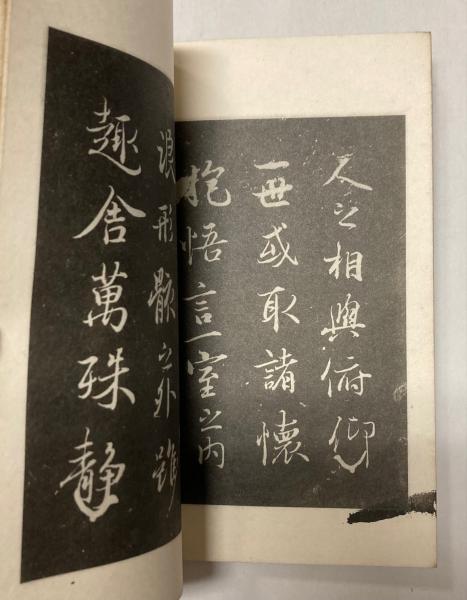 人之相與俯仰
一世或取諸懷
抱悟言一室之內
浪形骸之外雖
趣舍萬殊靜